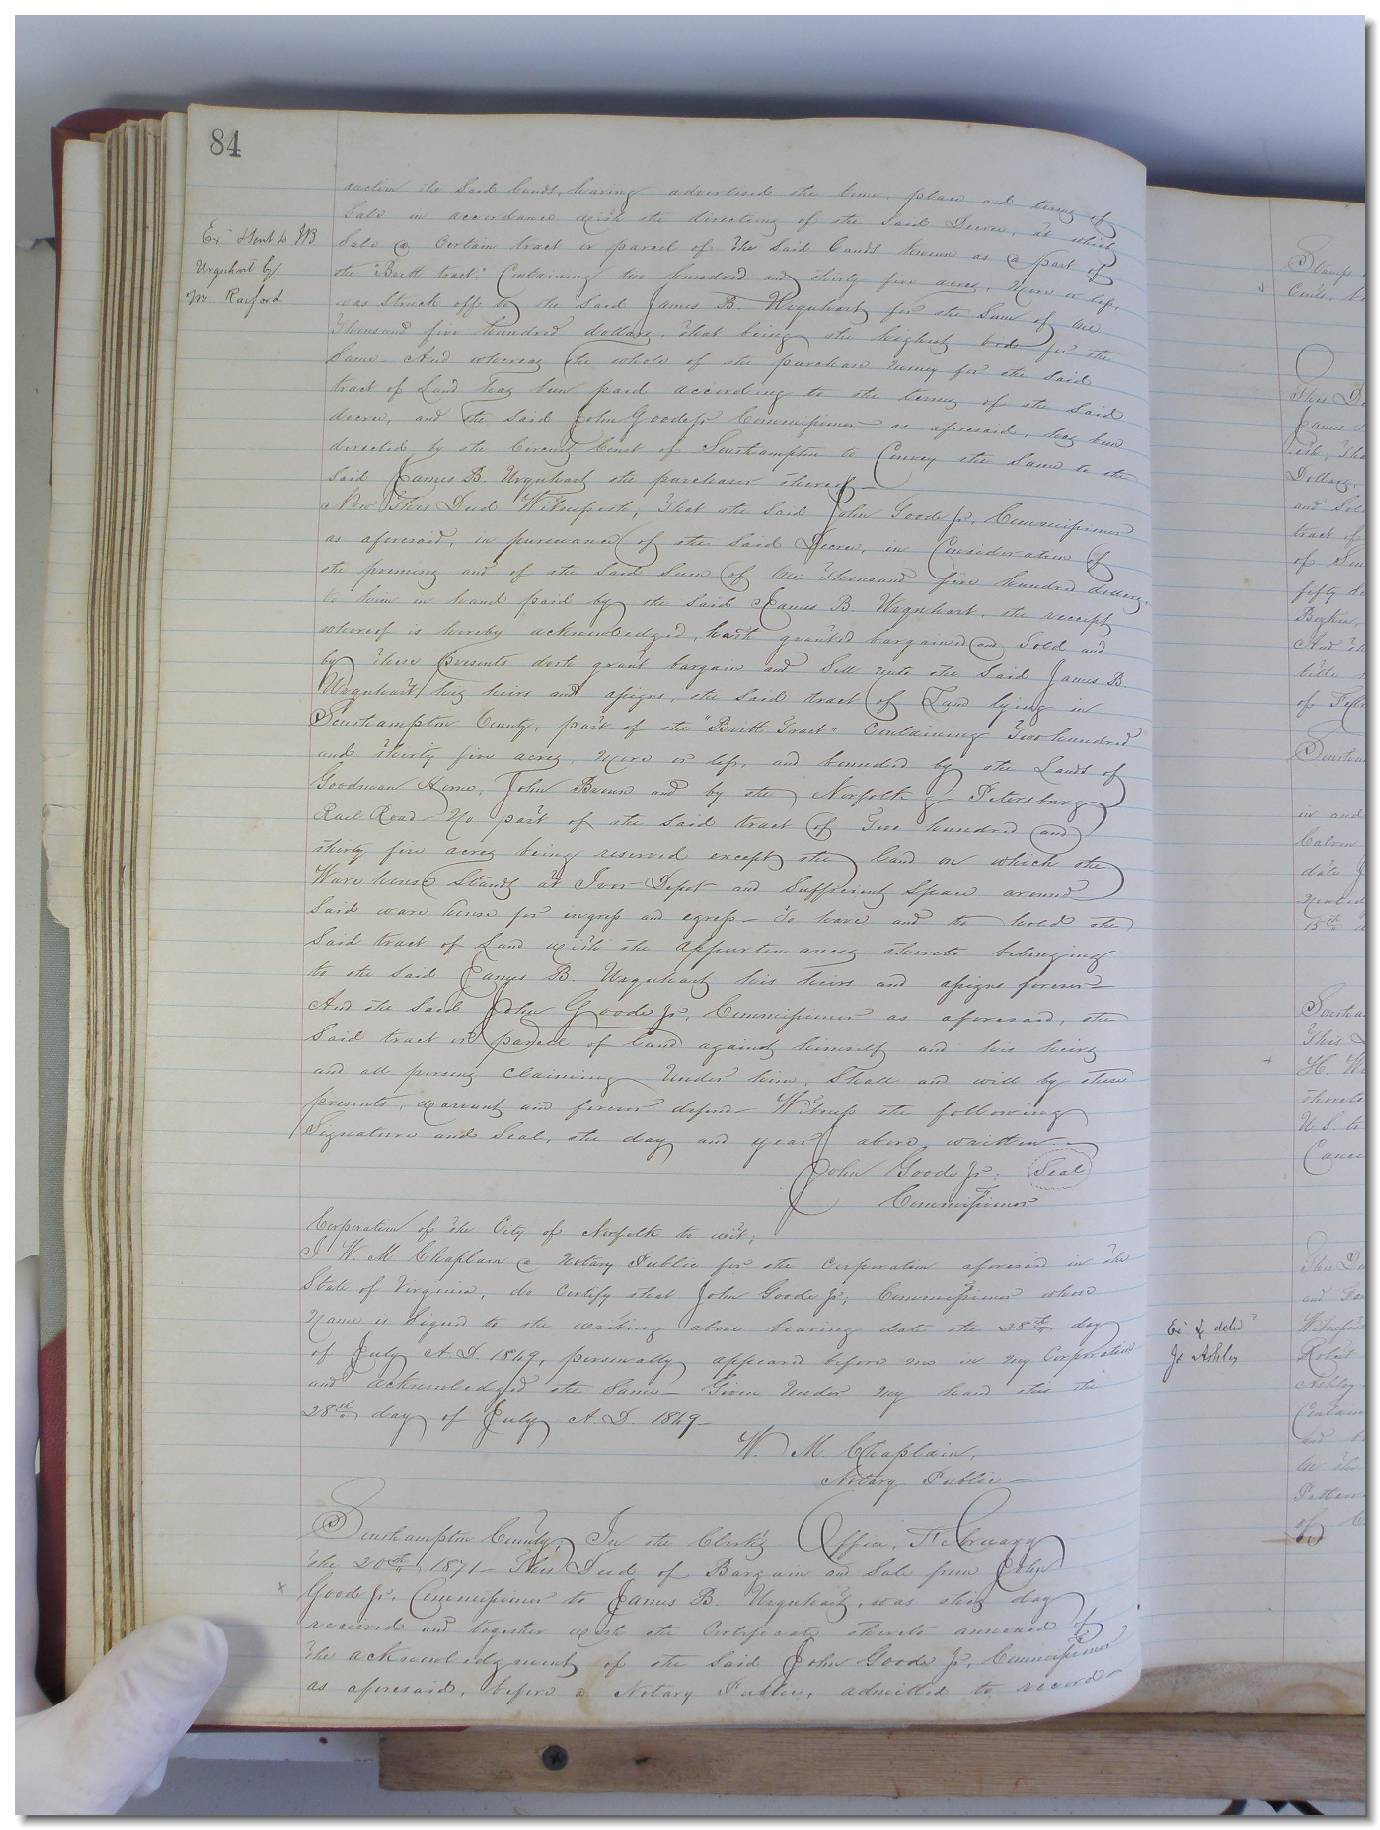 84
auction the said lands, having advertised the time, place and terms of
Sale in accordance with the directions of the said Decree, at which
Sale a certain tract or parcel of the said lands known as a part of
the "Britt tract" Containing two hundred and thirty five acres, more or less,
was struck off to the said James B. Urquhart for the sum of One
Thousand five hundred dollars, that being the highest bid for the
Same And whereas the whole of the purchase money for the said
tract of Land has been paid according to the terms of the said
decree, and the said John Goode Jr Commissioner as aforesaid, has been
directed by the Circuit Court of Southampton to Convey the same to the
said James B. Urquhart the purchaser thereof—
Now This Deed Witnesseth, That the said John Goode Jr, Commissioner
as aforesaid, in pursuance of the said Decree, in Consideration of
the premises and of the said sum of One Thousand five hundred dollars,
to him in hand paid by the said James B Urquhart, the receipt
whereof is hereby acknowledged, hath granted bargained and sold and
by these presents doth grant bargain and sell unto the said James B.
Urquhart his heirs and assigns, the said tract of Land lying in
Southampton County, part of the "Britt Tract" Containing Two hundred
and thirty five acres, more or less, and bounded by the Lands of
Goodman Horne, John Brown and by the Norfolk & Petersburg
Rail Road— No part of the said tract of Two hundred and
thirty five acres being reserved except the land on which the
Ware house stands at Ivor Depot and sufficient space around
said ware house for ingress and egress— To have and to hold the
said tract of Land with the appurtenances thereto belonging
to the said James B. Urquhart his heirs and assigns forever—
And the said John Goode Jr, Commissioner as aforesaid, the
said tract or parcel of land against himself and his heirs
and all persons claiming under him, shall and will by these
presents, warrant and forever defend— Witness the following
Signature and Seal, the day and year above written—
John Goode Jr. Seal
Commissioner
Corporation of the City of Norfolk to wit;
I W. M Chaplain a Notary Public for the corporation aforesaid in the
State of Virginia, do certify that John Goode Jr; Commissioner whose
Name is signed to the writing above bearing date the 28th day
of July A.D. 1869, personally appeared before me in my Corporation
and acknowledged the same— Given under my hand this the
28th day of July A.D. 1869—
W. M. Chaplain,
Notary Public—
Southampton County, In the Clerk's Office, February
the 20th 1871— This Deed of Bargain and Sale from John
Goode Jr. Commissioner to James B. Urquhart, was this day
received and together with the certificate thereto annexed of
the acknowledgment of the said John Goode Jr, Commissioner
as aforesaid, before a Notary Public, admitted to record—
Urquhart by
Mr Raiford
Stamps
Cents
This D
James
Dollars
and
tract of
of
fifty
And
of
in and
Calvin
date
15th
This
H. W
thereto
U. S.
and
Ashley
and
of
Ex & deld
Jo Ashley